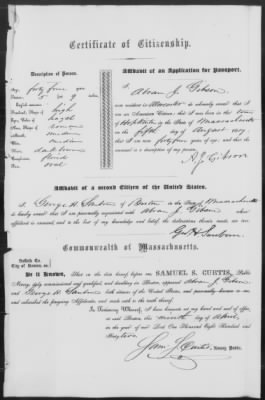 Certificate of Citizenship.
Description of Person.
Age, forty four years
English measure.
Forehead, Shape of high
Eyes, Color of hazel
Nose, Shape of
Mouth, Size of medium
Chin, medium
Hair, dark brown
Complexion, florid
Face, oval
Affidavit of an Application for Passport.
I,
now resident in Worcester do solemnly swear that I am
an American Citizen: that I was born in the town
of Hopkinton, in the State of Massachusetts
on the fifth day of August
that I am now forty four years of age; and that the
annexed is a description of my person.
Affidavit of a second Citizen of the United States.
I, George H. Sanborn of Boston in the State of Massachusetts
do hereby swear that I am personally acquainted with
affiant is sworn; and to the best of my knowledge and belief, the declarations therein made, are true.
Geo H Sanborn
Commonwealth of Massachusetts.
Suffolk Co.
City of Boston, ss.
Be it Known, That on the day hereof before me SAMUEL S. CURTIS, Public
Notary, duly commissioned and qualified, and dwelling in Boston, appeared
and George H. Sanborn both citizens of the United States, and personally known to me,
and subscribed the foregoing Affidavits, and made oath to the truth thereof.
In Testimony Whereof, I have hereunto set my hand and seal of office,
at said Boston, this ninth day of April,
in the year of our Lord One Thousand Eight Hundred and
Sixty two.
Saml S. Curtis, Notary Public.